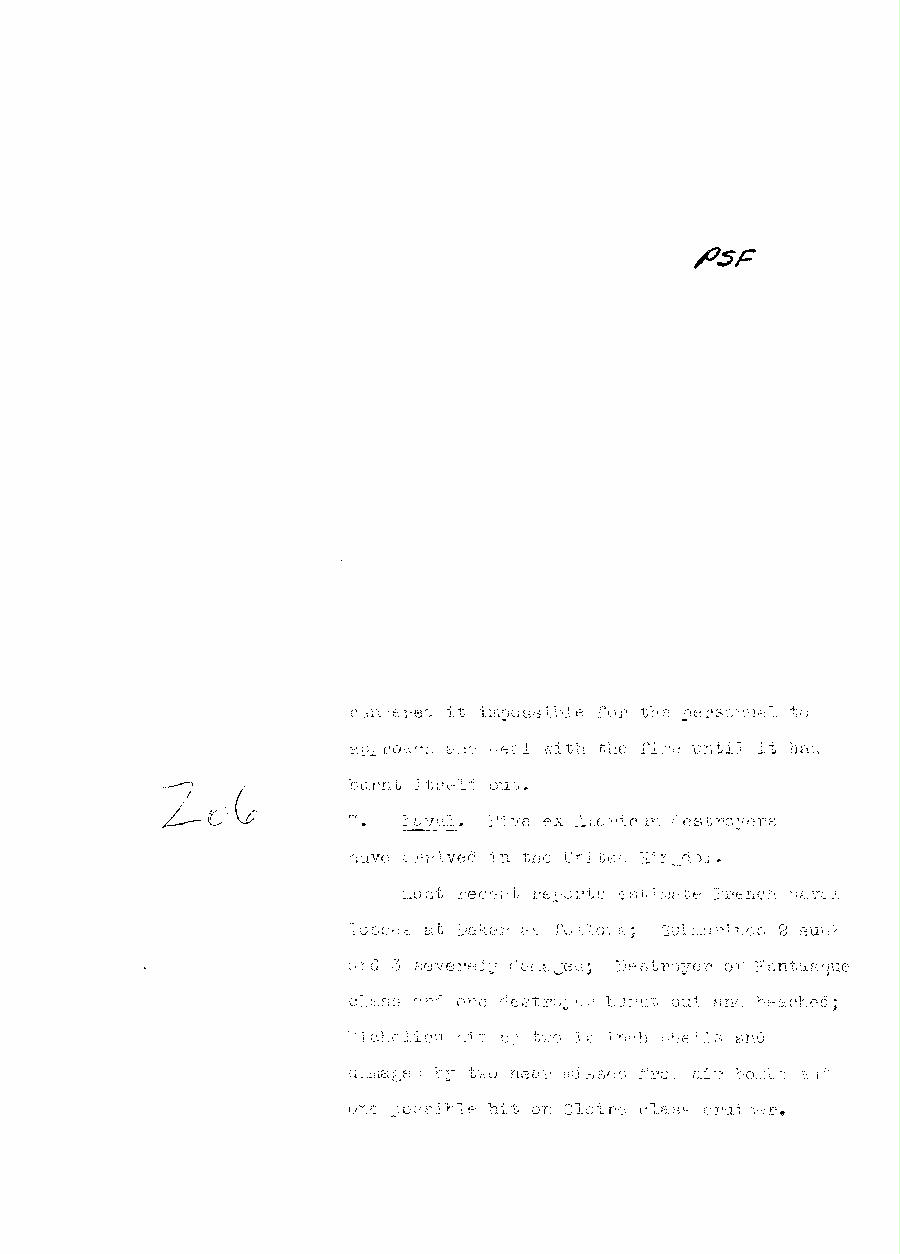 PSF
rendered it impossible for the personnel to
approach and deal with the fire until it had
burnt itself out.
7. Naval. Five ex American destroyers
have arrived in the United Kingdom.
Most recent reports estimate French naval
losses at Dakar as follows; Submarines 2 sunk
and 3 severely damaged; Destroyer of Fantasque
class and one destroyer burnt out and beached;
Richelieu hit by two 15 inch shells and
damaged by two near misses from air bombs and
one possible hit on Gloire class cruiser.